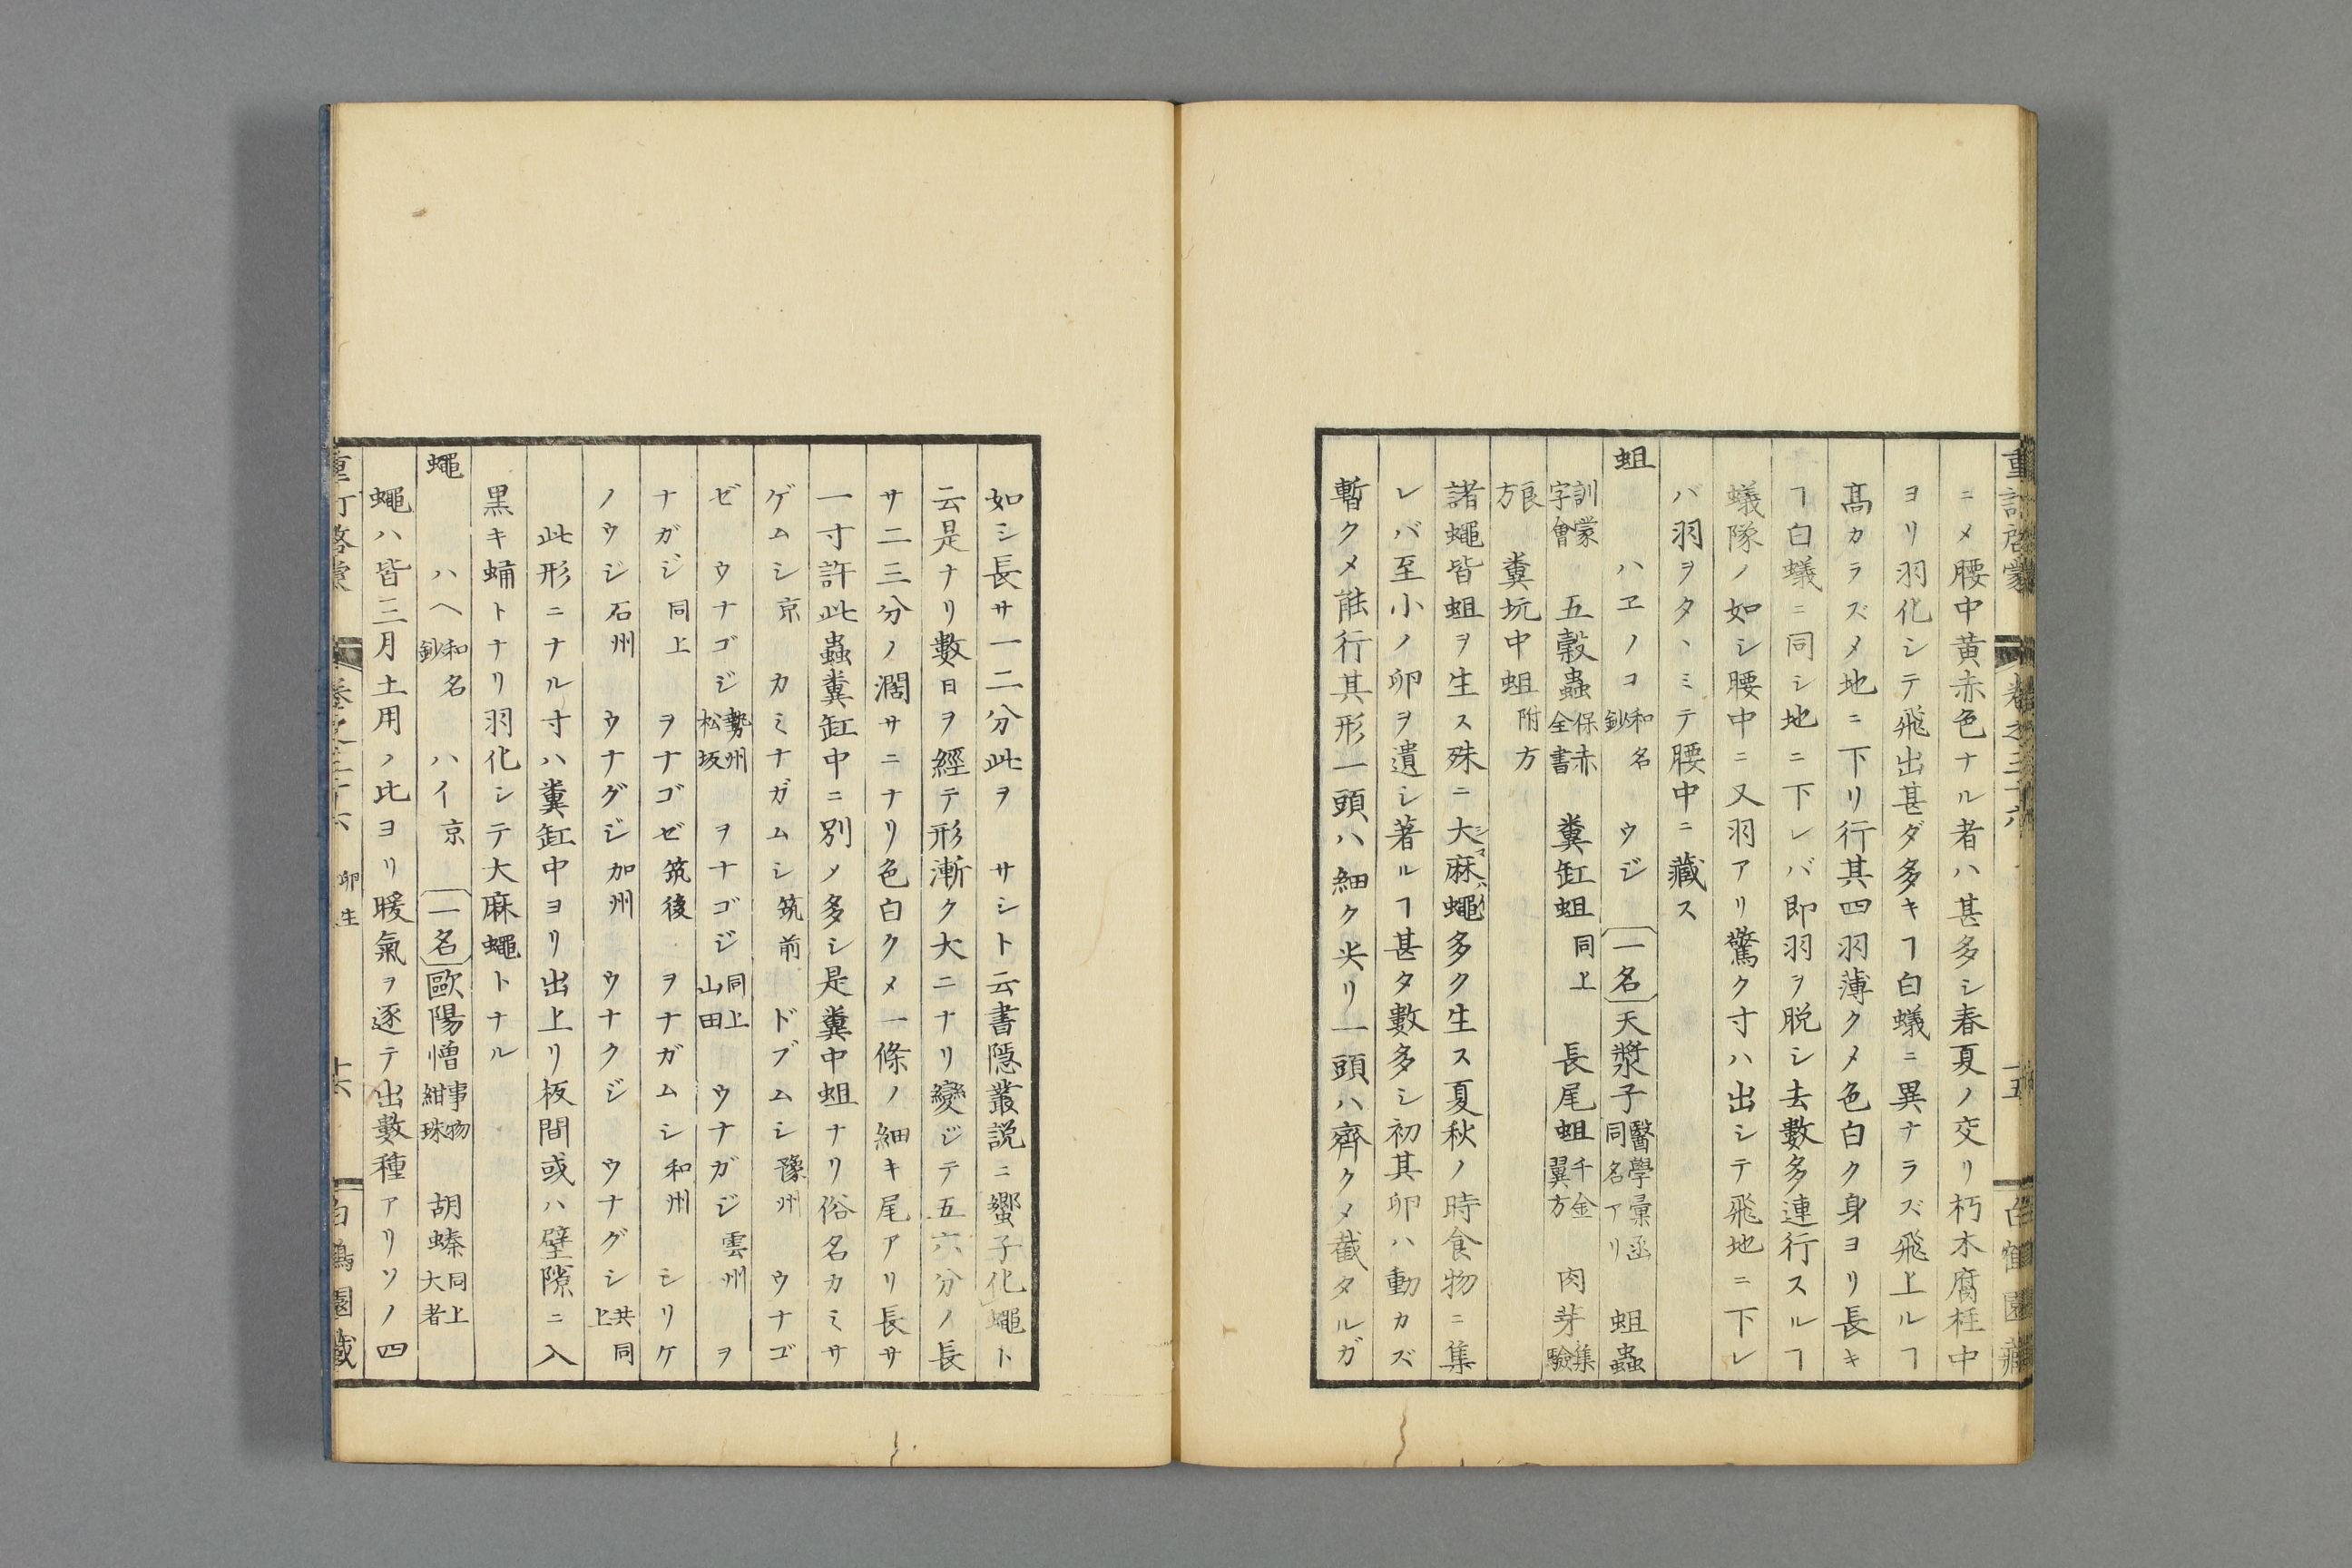 重訂啓蒙 卷之三十六 十五 白鶴園藏
ニメ腰中黄赤色ナル者ハ甚多シ春夏ノ交リ朽木腐柱中
ヨリ羽化シテ飛出甚ダ多キヿ白蟻ニ異ナラズ飛上ルヿ
髙カラズメ地ニ下リ行其四羽薄クメ色白ク身ヨリ長キ
ヿ白蟻ニ同シ地ニ下レバ即羽ヲ脱シ去數多連行スルヿ
蟻隊ノ如シ腰中ニ又羽アリ驚ク寸ハ出シテ飛地ニ下レ
バ羽ヲタヽミテ腰中ニ藏ス
蛆 ハヱノコ 和名鈔 ウジ 一名 天漿子 醫學彙函同名アリ 蛆蟲
訓蒙字會 五穀蟲 保赤全書 糞缸蛆 同上 長尾蛆 千金翼方 肉芽 集驗
良方 糞坑中蛆 附方
諸蠅皆蛆ヲ生ス殊ニ大麻蠅多ク生ス夏秋ノ時食物ニ集
レバ至小ノ卵ヲ遺シ著ルヿ甚タ數多シ初其卵ハ動カズ
暫クメ能行其形一頭ハ細ク尖リ一頭ハ齊クメ截タルガ
如シ長サ一二分此ヲ サシト云書隠叢説ニ蠁子化蠅ト
云是ナリ數日ヲ經テ形漸ク大ニナリ變ジテ五六分ノ長
サ二三分ノ濶サニナリ色白クメ一條ノ細キ尾アリ長サ
一寸許此蟲糞缸中ニ別メ多シ是糞中蛆ナリ俗名カミサ
ゲムシ 京 カミナガムシ 筑前 ドブムシ 豫州 ウナゴ
ゼ ウナゴジ 勢州松坂 ヲナゴジ 同上山田 ウナガジ 雲州 ヲ
ナガジ 同上 ヲナゴゼ 筑後 ヲナガムシ 和州 シリケ
ノウジ 石州 ウナグジ 加州 ウナクジ ウナグシ 共同上
此形ニナル寸ハ糞缸中ヨリ出上リ板間或ハ壁隙ニ入
黒キ蛹トナリ羽化シテ大麻蠅トナル
蠅 ハヘ 和名鈔 ハイ 京 一名 歐陽憎 事物紺珠 胡螓 同上大者
蠅ハ皆三月土用ノ比ヨリ暖氣ヲ逐テ出數種アリソノ四
重訂啓蒙 卷之三十六 卵生 十六 白鶴園藏